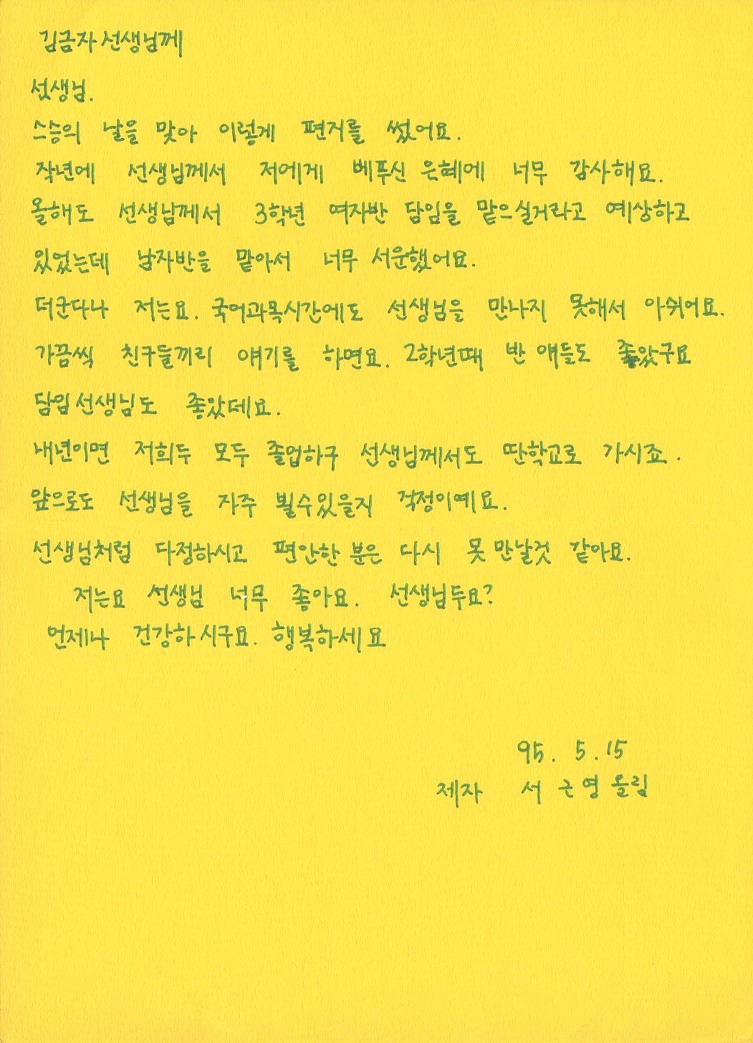 김금자선생님께
선생님.
스승의 날을 맞아 이렇게 편지를 썼어요.
작년에 선생님께서 저에게 베푸신 은혜에 너무 감사해요.
올해도 선생님께서 3학년 여자반 담임을 맡으실거라고 예상하고
있었는데 남자반을 맡아서 너무 서운했어요.
더군다나 저는요. 국어과목시간에도 선생님을 만나지 못해서 아쉬어요.
가끔씩 친구들끼리 얘기를 하면요. 2학년때 반 얘들도 좋았구요
담임선생님도 좋았데요.
내년이면 저희두 모두 졸업하구 선생님께서도 딴학교로 가시죠.
앞으로도 선생님을 자주 뵐수있을지 걱정이예요.
선생님처럼 다정하시고 편안한 분은 다시 못 만날것 같아요.
저는요 선생님 너무 좋아요. 선생님두요?
언제나 건강하시구요. 행복하세요
95. 5. 15
제자 서근영올림